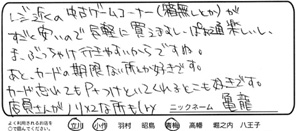 レジ近くの中古ゲームコーナー(箱無しとか)が
すごく安いので気軽に買えるし、ぱお通楽しいし、
まぶっちゃけ行きやすいからですね。
あと、カードの期限ない所が好きです。
カード忘れてもPつけといてくれるとこも好きです。
店員さんが
ニックネーム 亀龍
よく利用されるお店を
○で囲んでください。
立川 小作 羽村 昭島 青梅 高幡 堀之内 八王子